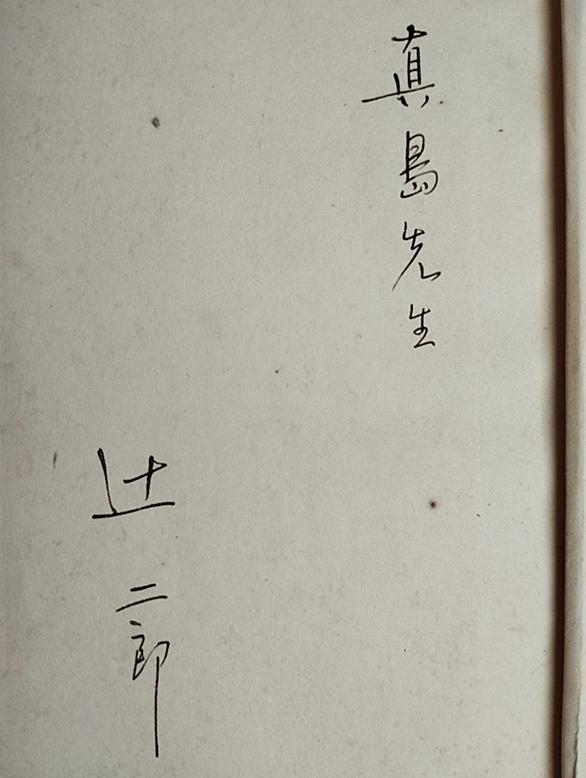 真島先生
辻二郎